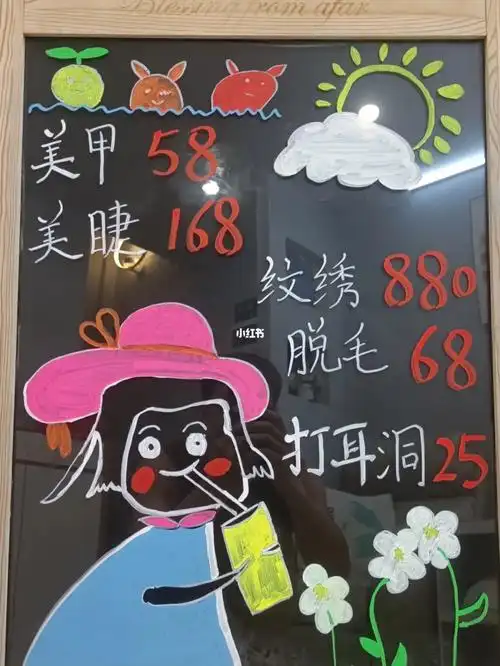 Blessing from afar
美甲 58
美睫 168
纹绣 880
小红书
脱毛 68
打耳洞 25